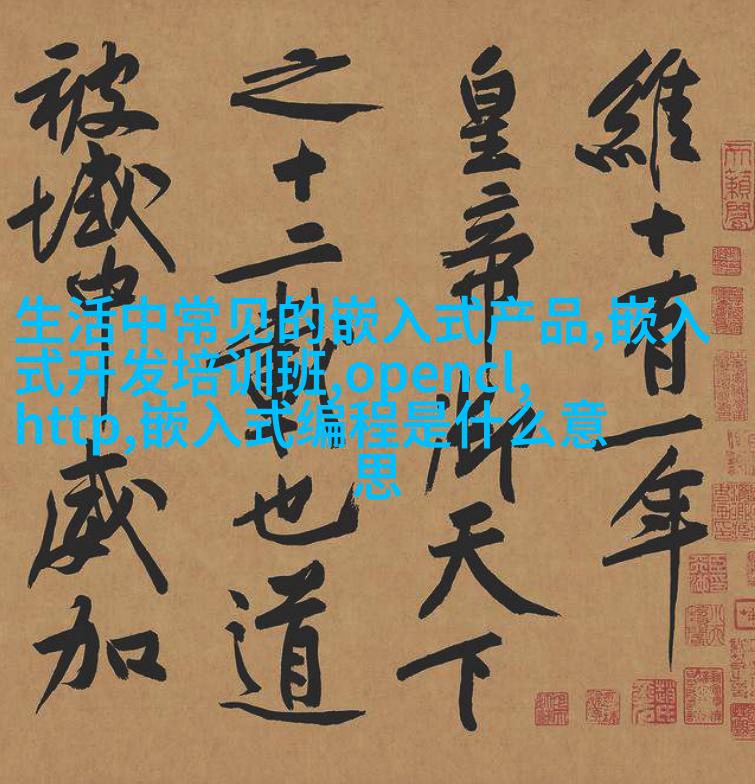 維十有一年
皇帝御天下
之十二載也道
被域中威加
生活中常见的嵌入式产品,嵌入
式开发培训班,opencl,
http,嵌入式编程是什么意
思